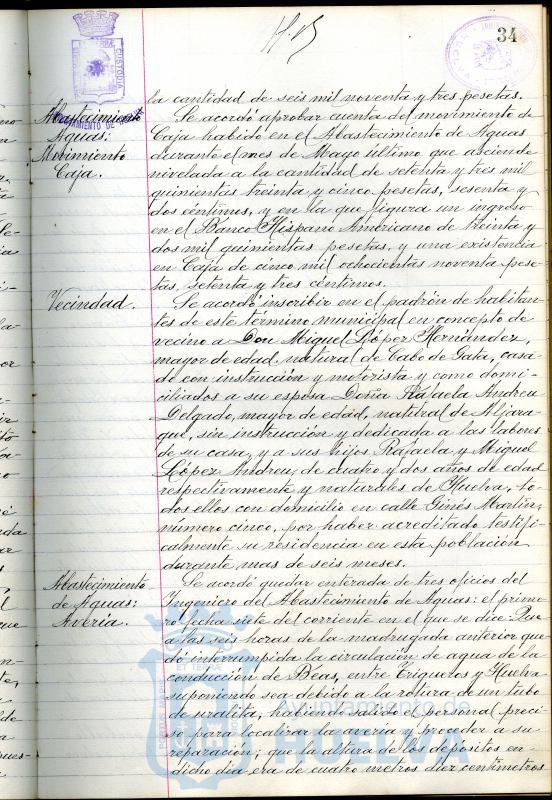 34
la cantidad de seis mil noventa y tres pesetas.
Abastecimiento
Aguas:
Movimiento
Caja.
Se acordó aprobar cuenta del movimiento de
Caja habido en el Abastecimiento de Aguas
durante el mes de Mayo último que asciende
nivelada a la cantidad de setenta y tres mil
quinientas treinta y cinco pesetas, sesenta y
dos céntimos, y en la que figura un ingreso
en el Banco Hispano Americano de treinta y
dos mil quinientas pesetas, y una existencia
en Caja de cinco mil ochocientas noventa pese-
tas, setenta y tres céntimos.
Vecindad.
Se acordó inscribir en el padrón de habitan-
tes de este término municipal en concepto de
vecino a Don Miguel López Hernández,
mayor de edad, natural de Cabo de Gata, casa-
do con instrucción y motorista y como domi-
ciliados a su esposa Doña Rafaela Andreu
Delgado, mayor de edad, natural de Aljara-
que, sin instrucción y dedicada a las labores
de su casa, y a sus hijos Rafaela y Miguel
López Andreu, de cuatro y dos años de edad
respectivamente y naturales de Huelva, to-
dos ellos con domicilio en calle Ginés Martín,
número cinco, por haber acreditado testifi-
calmente su residencia en esta población
durante mas de seis meses.
Abastecimiento
de Aguas:
Averia.
Se acordó quedar enterada de tres oficios del
Ingeniero del Abastecimiento de Aguas: el prime-
ro fecha siete del corriente en el que se dice: Que
a las seis horas de la madrugada anterior que-
dó interrumpida la circulación de agua de la
conducción de Beas, entre Trigueros y Huelva
suponiendo sea debido a la rotura de un tubo
de uralita, habiendo salido el personal preci-
so para localizar la averia y proceder a su
reparación; que la altura de los depósitos en
dicho día era de cuatro metros diez centímetros
Ayuntamiento de
HUELVA